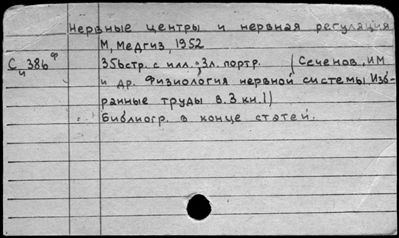 Нервные центры и нервная регуляция
М, Медгиз, 1952
С 386 ф
ч
356стр. с илл.; 3л. портр. (Сеченов, ИМ
и др. Физиология нервной системы Изб-
ранные труды в.3 кн.1)
Библиогр. в конце статей.